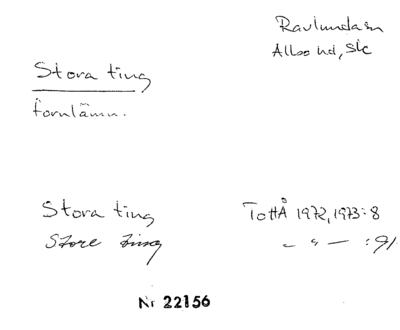 Ravlunda sn
Albo hd, Sk
Stora ting
fornlämn.
Stora ting
TottÅ 1972, 1973:8
Store ting
— " — :91
Nr 22156